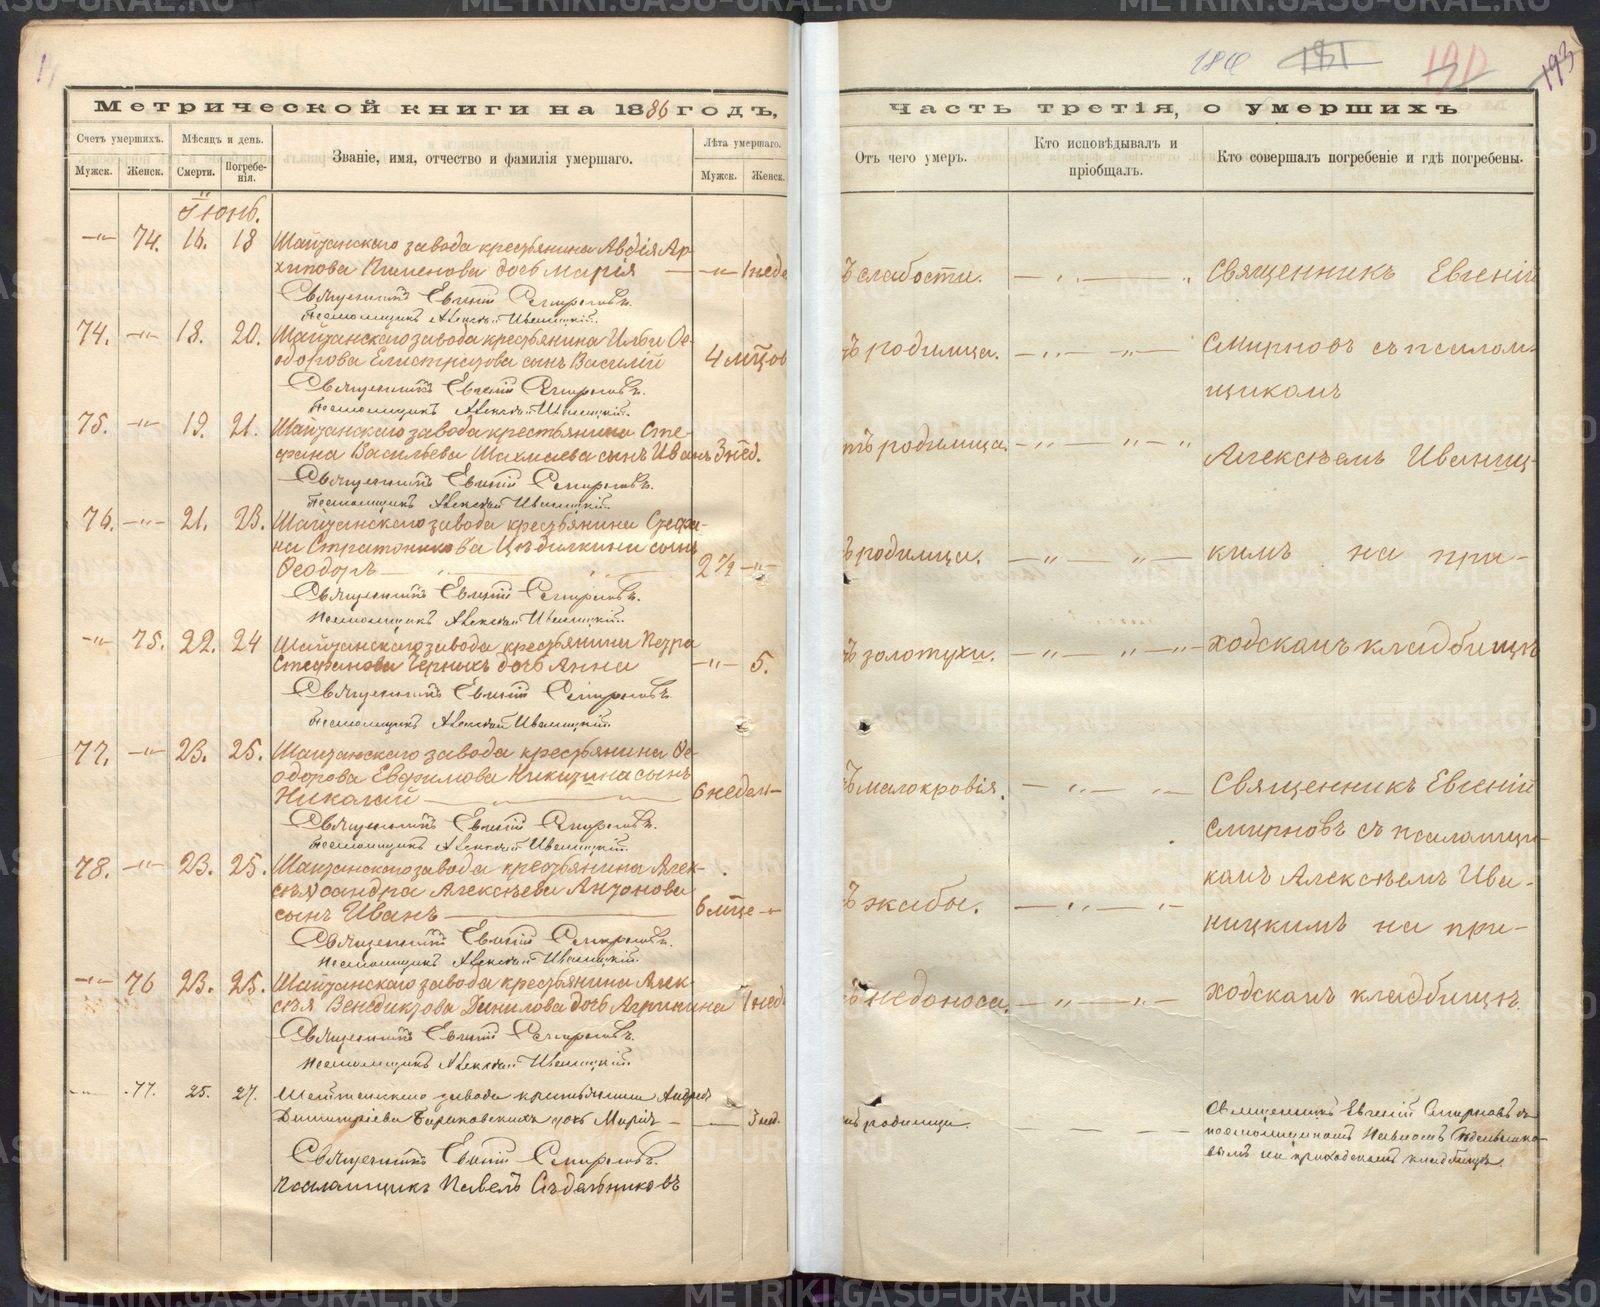 186 181 190 193
Метрической книги на 1886 годъ,
Часть третія, о умершихъ
Счетъ умершихъ.
Мѣсяцъ и день.
Званіе, имя, отчество и фамилія умершаго.
Лѣта умершаго.
Мужск.
Женск.
Смерти.
Погребе-
нія.
Мужск.
Женск.
Отъ чего умеръ.
Кто исповѣдывалъ и
пріобщалъ.
Кто совершалъ погребеніе и гдѣ погребены.
Іюнь.
74. 16. 18 Шайтанскаго завода крестьянина Авдія Ар-
хипова Пименова дочь Марія — 1 неде
Священникъ Евгеній Смирновъ.
Псаломщикъ Алексѣй Иваницкій.
74. 18. 20. Шайтанскаго завода крестьянина Ильи Ѳе-
одорова Елистратова сынъ Василій 4 мѣцов
Священникъ Евгеній Смирновъ.
Псаломщикъ Алексѣй Иваницкій.
75. 19. 21. Шайтанскаго завода крестьянина Сте-
фана Васильева сынъ Иванъ 3 нед.
Священникъ Евгеній Смирновъ.
Псаломщикъ Алексѣй Иваницкій.
76. 21. 23. Шайтанскаго завода крестьянина Стефа-
на Стратоникова Цѣдилкина сынъ
Ѳеодоръ 2 ½
Священникъ Евгеній Смирновъ.
Псаломщикъ Алексѣй Иваницкій.
75. 22. 24 Шайтанскаго завода крестьянина Петра
Стефанова Черныхъ дочь Анна 5.
Священникъ Евгеній Смирновъ.
Псаломщикъ Алексѣй Иваницкій.
77. 23. 25. Шайтанскаго завода крестьянина Ѳе-
одорова Евфимова Никитина сынъ
Николай 6 недель
Священникъ Евгеній Смирновъ.
Псаломщикъ Алексѣй Иваницкій.
78. 23. 25. Шайтанскаго завода крестьянина Алек-
сандра Алексѣева Антонова
сынъ Иванъ 6 мѣце
Священникъ Евгеній Смирновъ.
Псаломщикъ Алексѣй Иваницкій.
76 23. 25. Шайтанскаго завода крестьянина Алек-
сѣя Венедиктова Данилова дочь Агрипина 1 нед
Священникъ Евгеній Смирновъ.
Псаломщикъ Алексѣй Иваницкій.
77. 25. 27. Шайтанскаго завода крестьянина Андрея
Димитріева Бараковскихъ дочь Марія 3 нед.
Священникъ Евгеній Смирновъ.
Псаломщикъ Павелъ Сѣдельниковъ
ъ слабости. Священникъ Евгеній
ъ родимца. Смирновъ съ псалом-
щикомъ
тъ родимца. Алексѣемъ Иваниц-
ъ родимца. кимъ на при-
ъ золотухи. ходскомъ кладбищѣ
ъ малокровія. Священникъ Евгеній
Смирновъ съ псаломщи-
комъ Алексѣемъ Ива-
ъ жабы. ницкимъ на при-
ъ недоноса. ходскомъ кладбищѣ.
Священникъ Евгеній Смирновъ съ
ъ родимца. псаломщикомъ Павломъ Сѣдельнико-
вымъ на приходскомъ кладбищѣ.
METRIKI.GASO-URAL.RU